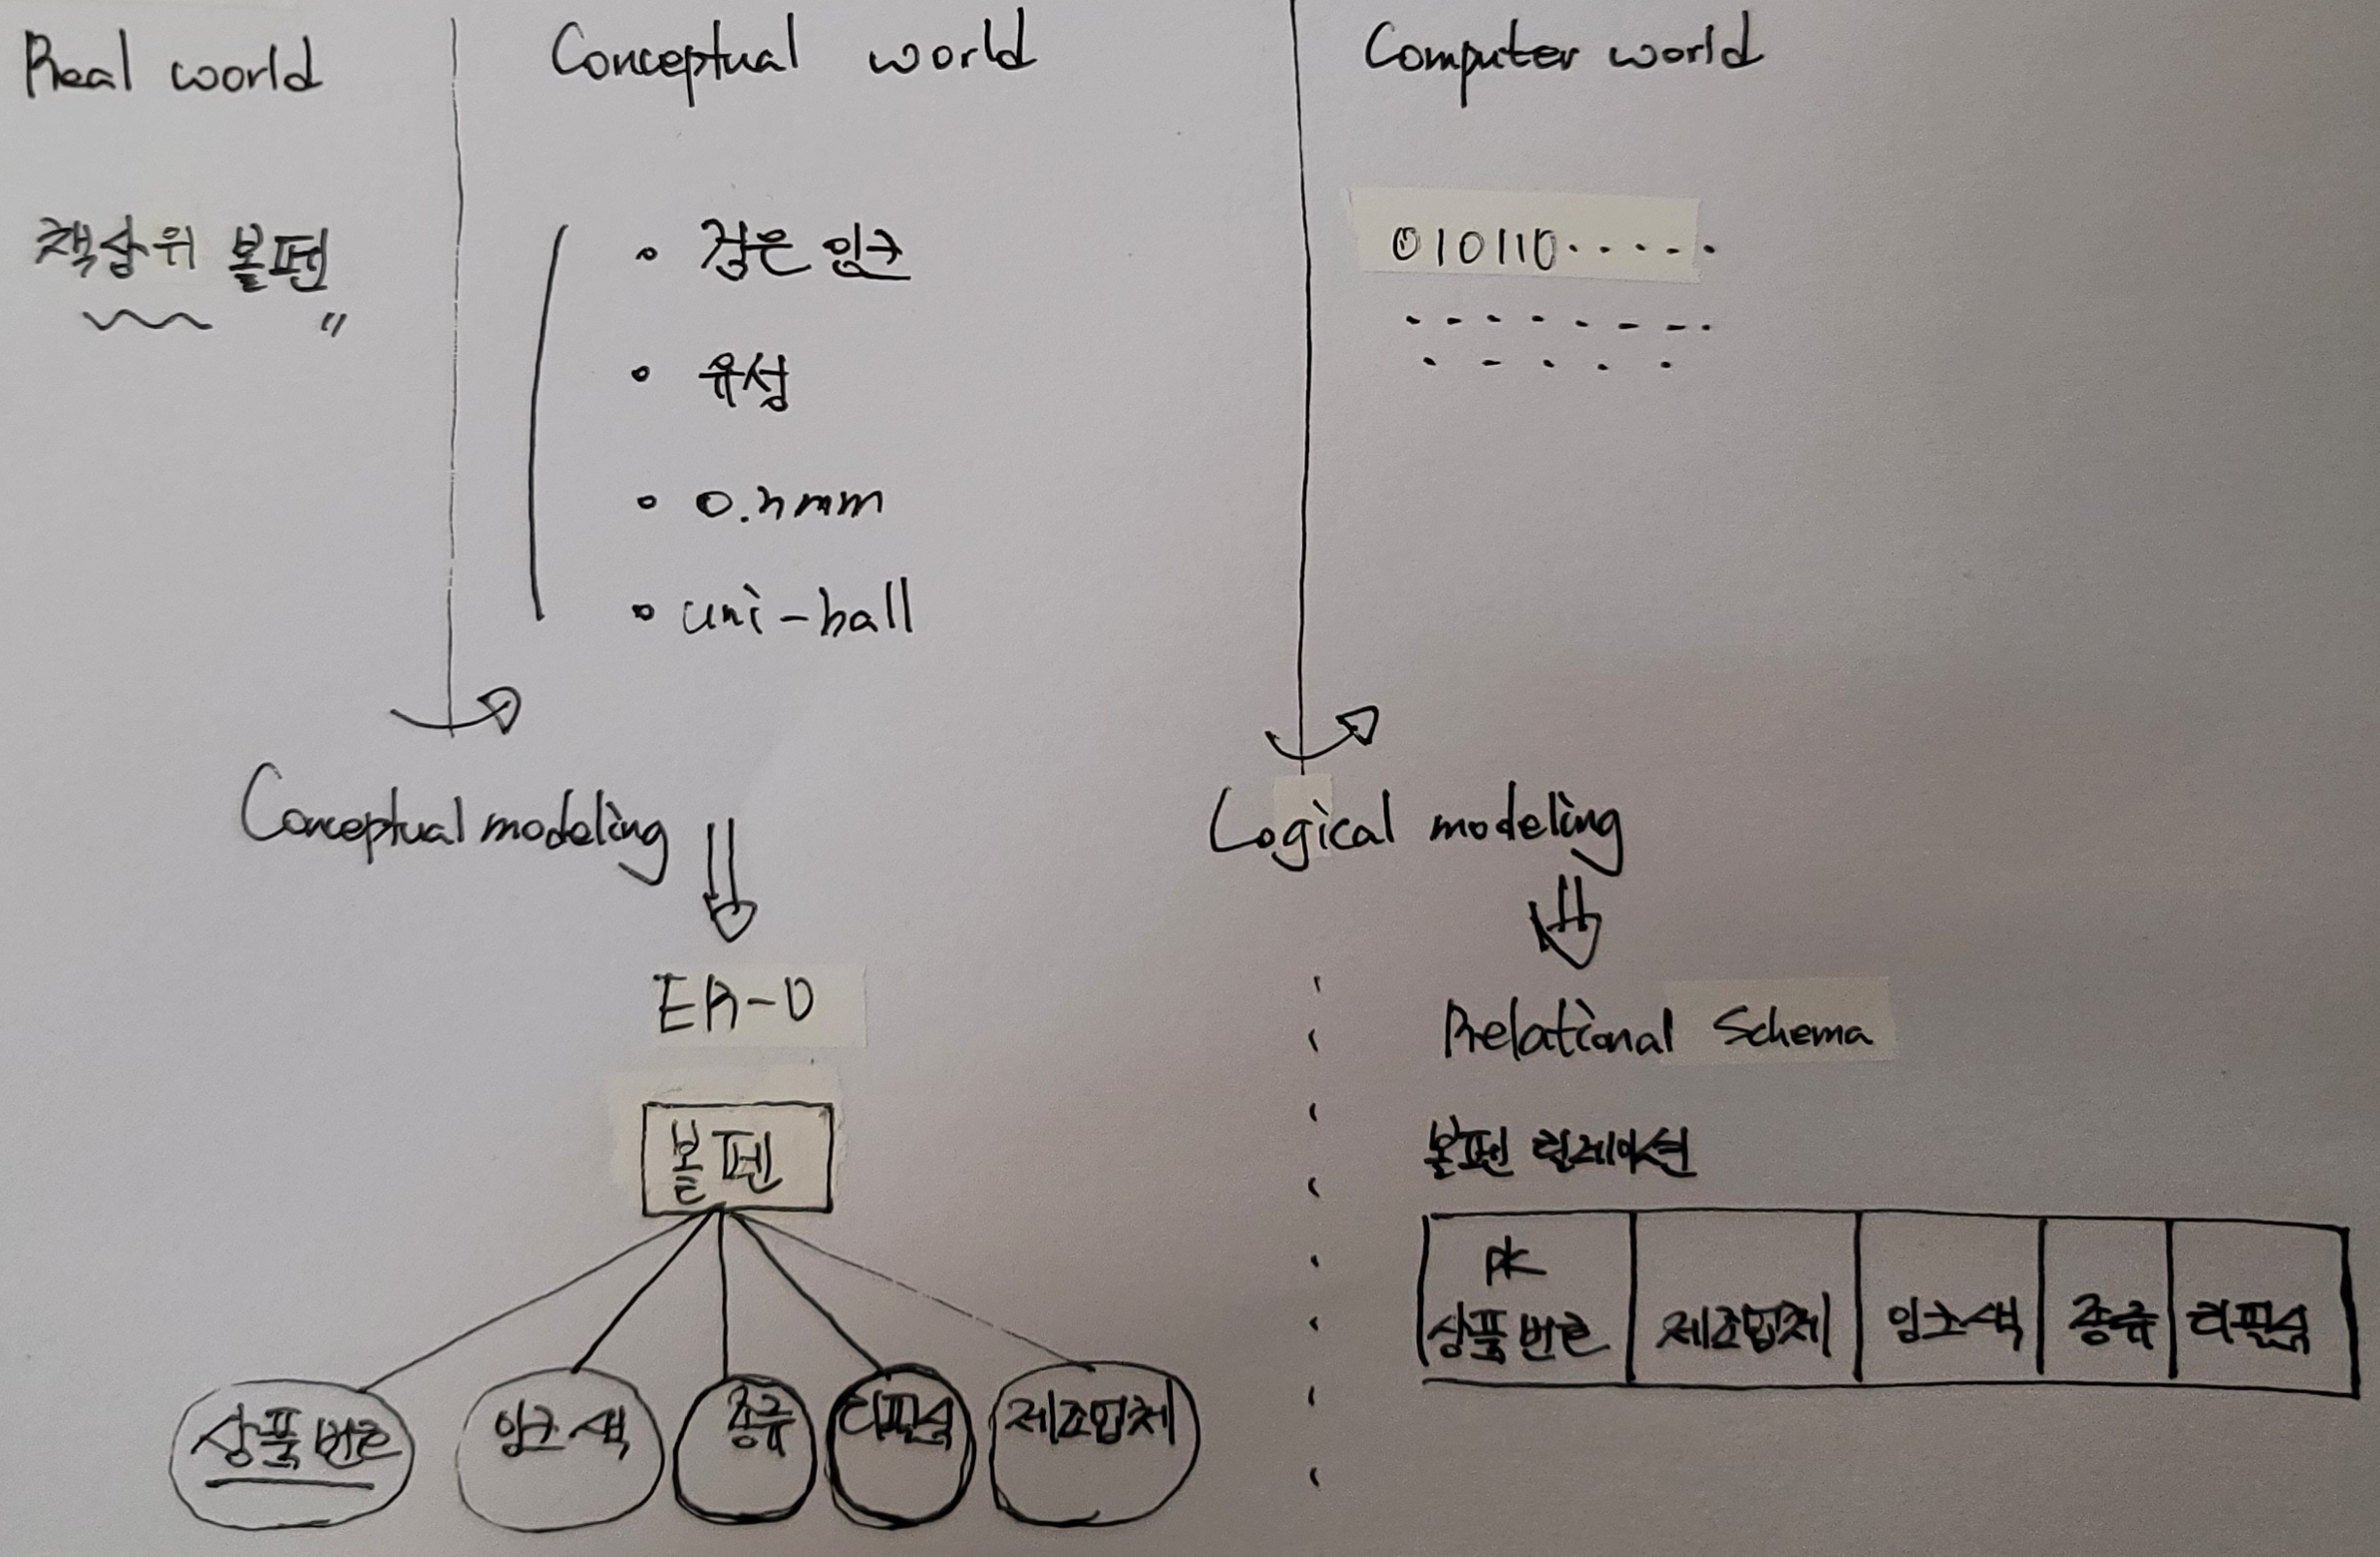 Real world
Conceptual world
Computer world
책상위 볼펜
검은 잉크
유성
0.7mm
uni-ball
010110.....
Conceptual modeling
Logical modeling
ER-D
Relational Schema
볼펜
볼펜 릴레이션
PK
상품번호 제조업체 잉크색 종류 리필심
상품번호 잉크색 종류 리필심 제조업체